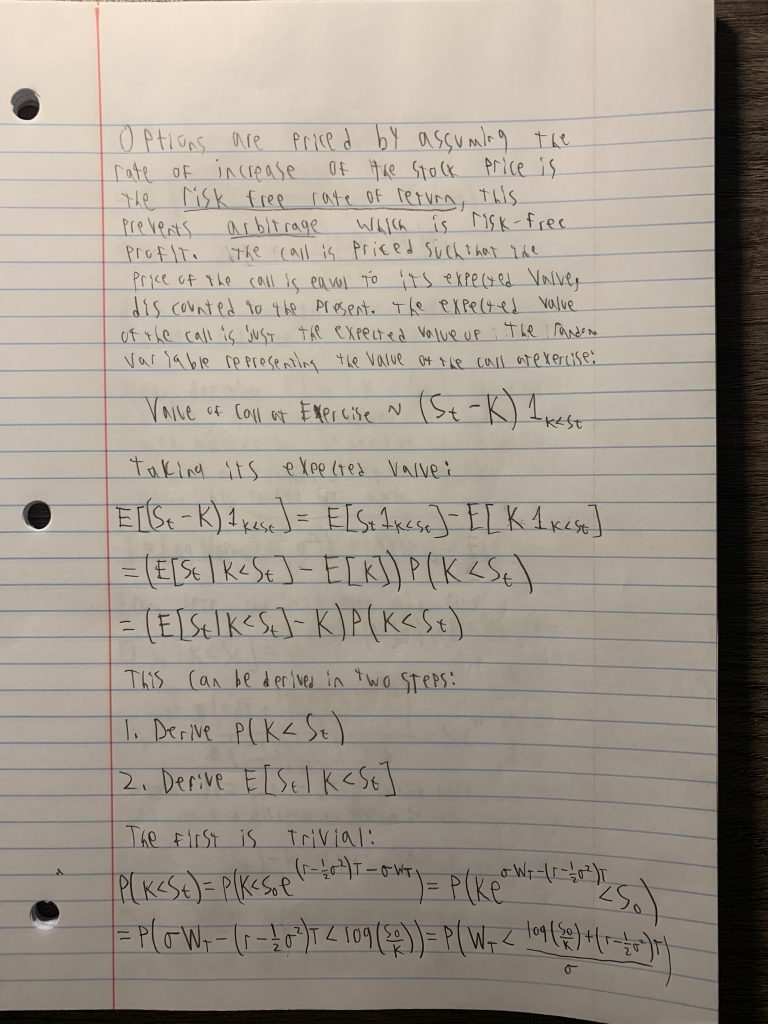 Options are priced by assuming the
rate of increase of the stock price is
the risk free rate of return, this
prevents arbitrage which is risk-free
profit. The call is priced such that the
price of the call is equal to its expected value,
discounted to the present. The expected value
of the call is just the expected value of the random
variable representing the value of the call at exercise:
Value of Call at Exercise ~ (St - K) 1_{K<St}
Taking its expected value:
E[(St - K) 1_{K<St}] = E[St 1_{K<St}] - E[K 1_{K<St}]
= (E[St | K<St] - E[K]) P(K<St)
= (E[St | K<St] - K) P(K<St)
This can be derived in two steps:
1. Derive P(K<St)
2. Derive E[St | K<St]
The first is trivial:
P(K<St) = P(K<S₀e^{(r-½σ²)T-σW_T}) = P(Ke^{σW_T-(r-½σ²)T}<S₀)
= P(σW_T - (r-½σ²)T < log(S₀/K)) = P(W_T < (log(S₀/K)+(r-½σ²)T)/σ)